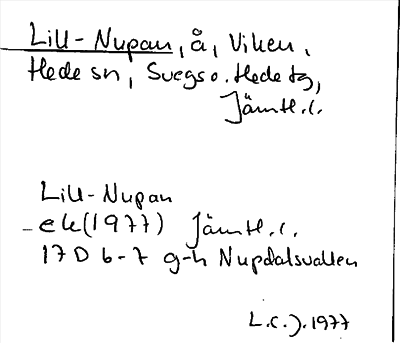 Lill-Nupan, å, Viken,
Hede sn, Svegs o. Hede tg,
Jämtl. l.
Lill-Nupan
- ek (1977) Jämtl. l.
17 D 6-7 g-h Nupdalsvallen
L.C.J. 1977